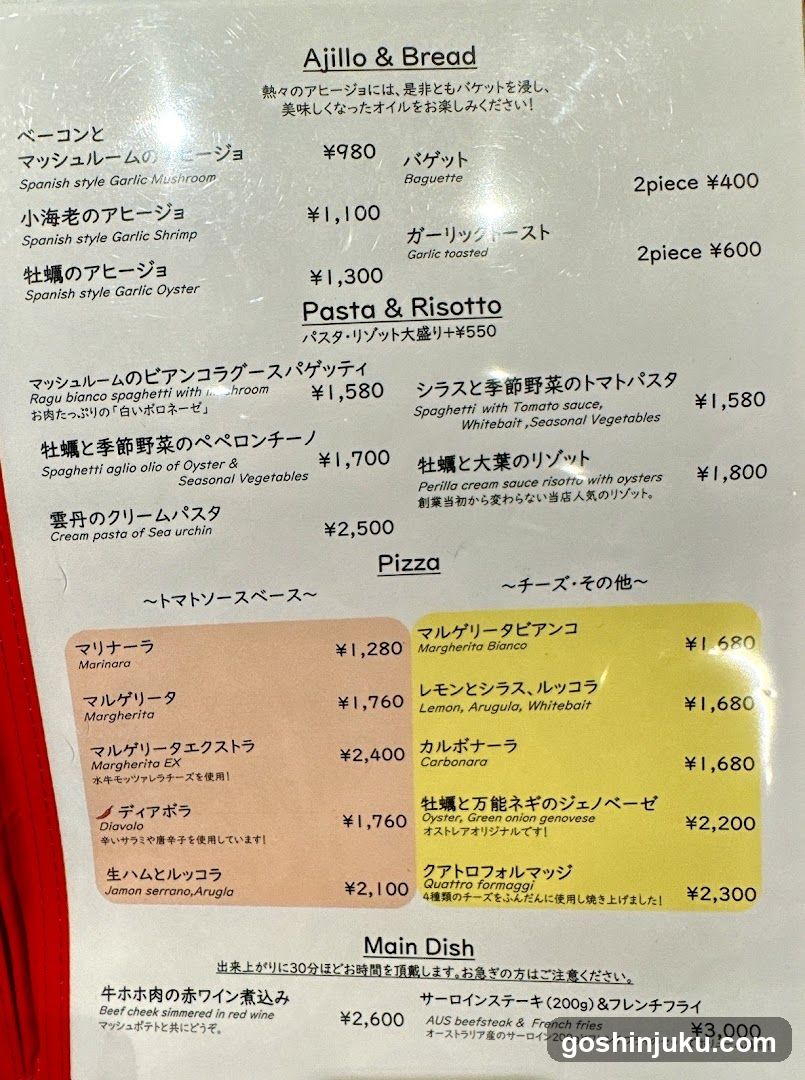 Ajillo & Bread
熱々のアヒージョには、是非ともバケットを浸し、
美味しくなったオイルをお楽しみください!
ベーコンと
マッシュルームの ヒージョ ¥980
Spanish style Garlic Mushroom
小海老のアヒージョ ¥1,100
Spanish style Garlic Shrimp
牡蠣のアヒージョ ¥1,300
Spanish style Garlic Oyster
バゲット
Baguette
2piece ¥400
ガーリックトースト
Garlic toasted
2piece ¥600
Pasta & Risotto
パスタ・リゾット大盛り+¥550
マッシュルームのビアンコラグースパゲッティ
Ragu bianco spaghetti with mushroom ¥1,580
お肉たっぷりの「白いボロネーゼ」
牡蠣と季節野菜のペペロンチーノ
Spaghetti aglio olio of Oyster & ¥1,700
Seasonal Vegetables
雲丹のクリームパスタ ¥2,500
Cream pasta of Sea urchin
シラスと季節野菜のトマトパスタ ¥1,580
Spaghetti with Tomato sauce,
Whitebait ,Seasonal Vegetables
牡蠣と大葉のリゾット ¥1,800
Perilla cream sauce risotto with oysters
創業当初から変わらない当店人気のリゾット。
Pizza
〜トマトソースベース〜
マリナーラ ¥1,280
Marinara
マルゲリータ ¥1,760
Margherita
マルゲリータエクストラ ¥2,400
Margherita EX
水牛モッツァレラチーズを使用!
ディアボラ ¥1,760
Diavolo
辛いサラミや唐辛子を使用しています!
生ハムとルッコラ ¥2,100
Jamon serrano,Arugla
〜チーズ・その他〜
マルゲリータビアンコ ¥1,680
Margherita Bianco
レモンとシラス、ルッコラ ¥1,680
Lemon, Arugula, Whitebait
カルボナーラ ¥1,680
Carbonara
牡蠣と万能ネギのジェノベーゼ ¥2,200
Oyster, Green onion genovese
オストレアオリジナルです!
クアトロフォルマッジ ¥2,300
Quattro formaggi
4種類のチーズをふんだんに使用し焼き上げました!
Main Dish
出来上がりに30分ほどお時間を頂戴します。お急ぎの方はご注意ください。
牛ホホ肉の赤ワイン煮込み ¥2,600
Beef cheek simmered in red wine
マッシュポテトと共にどうぞ。
サーロインステーキ(200g)&フレンチフライ
AUS beefsteak & French fries ¥3,000
オーストラリア産のサーロイン200
goshinjuku.com